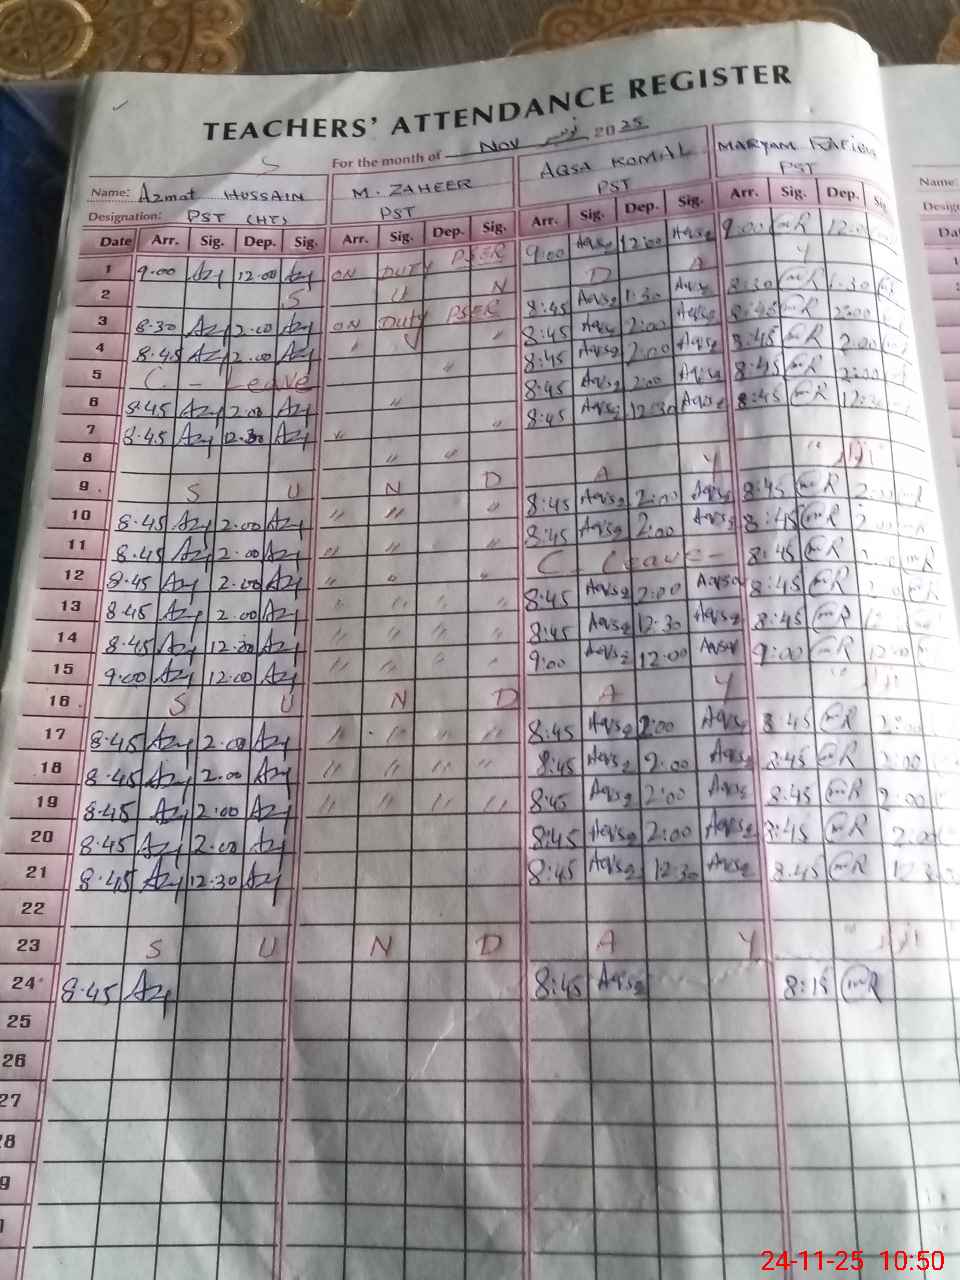 TEACHERS' ATTENDANCE REGISTER
For the month of Nov نومبر 2025
Name: Azmat HUSSAIN M. ZAHEER AQSA KOMAL MARYAM
Designation: PST (HT) PST PST PST
Date Arr. Sig. Dep. Sig. Arr. Sig. Dep. Sig. Arr. Sig. Dep. Sig. Arr. Sig. Dep. Sig.
1 9.00 Azy 12.00 Azy ON DUTY PSER 9:00 Aqsa 12:00 Aqsa 9:00 mR 12:00
2 S U N D A Y
3 8.30 Azy 2.00 Azy ON DUTY PSER 8:45 Aqsa 1:30 Aqsa 8:30 mR 1:30
4 8.45 Azy 2.00 Azy " 8:45 Aqsa 2:00 Aqsa 8:45 mR 2:00
5 C - Leave " 8:45 Aqsa 2:00 Aqsa 8:45 mR 2:00
6 8.45 Azy 2.00 Azy " 8:45 Aqsa 2:00 Aqsa 8:45 mR 2:00
7 8.45 Azy 12.30 Azy " " 8:45 Aqsa 12:30 Aqsa 8:45 mR 12:30
8 " "
9 S U N D A Y " اتوار
10 8.45 Azy 2.00 Azy " " " 8:45 Aqsa 2:00 Aqsa 8:45 mR 2:00
11 8.45 Azy 2.00 Azy " " " 8:45 Aqsa 2:00 Aqsa 8:45 mR 2:00
12 8.45 Azy 2.00 Azy " " " C. Leave - 8:45 mR 2:00 mR
13 8.45 Azy 2.00 Azy " " " " 8:45 Aqsa 2:00 Aqsa 8:45 mR 2:00 mR
14 8.45 Azy 12.30 Azy " " " " 8:45 Aqsa 12:30 Aqsa 8:45 mR 12
15 9.00 Azy 12.00 Azy " " " " 9:00 Aqsa 12:00 Aqsa 9:00 mR 12:00
16 S U N D A Y " اتوار
17 8.45 Azy 2.00 Azy " " " " 8:45 Aqsa 2:00 Aqsa 8:45 mR 2:00
18 8.45 Azy 2.00 Azy " " " " 8:45 Aqsa 2:00 Aqsa 8:45 mR 2:00
19 8.45 Azy 2.00 Azy " " " " 8:45 Aqsa 2:00 Aqsa 8:45 mR 2:00
20 8.45 Azy 2.00 Azy 8:45 Aqsa 2:00 Aqsa 8:45 mR 2:00
21 8.45 Azy 12.30 Azy 8:45 Aqsa 12:30 Aqsa 8.45 mR 12:3
22
23 S U N D A Y " اتوار
24 8.45 Azy 8:45 Aqsa 8:15 mR
25
26
27
28
Name:
24-11-25 10:50